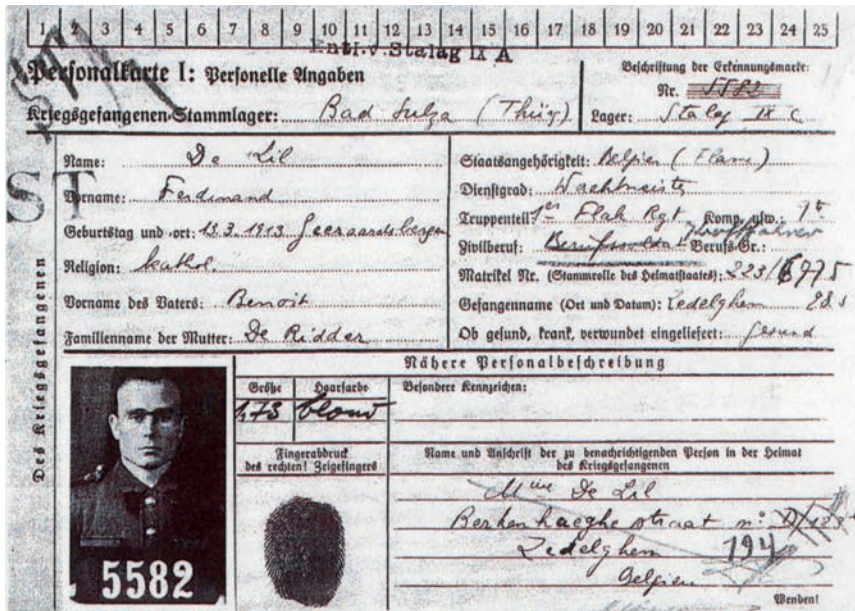 1 2 3 4 5 6 7 8 9 10 11 12 13 14 15 16 17 18 19 20 21 22 23 24 25
Entl. v. Stalag IX A
Personalkarte I: Personelle Angaben
Beschriftung der Erkennungsmarke:
Nr. 5582
Kriegsgefangenen-Stammlager: Bad Sulza (Thür)
Lager: Stalag IX C
Des Kriegsgefangenen
Name: De Lil
Vorname: Ferdinand
Geburtstag und -ort: 13.3.1913 Geeraardsbergen
Religion: kathol.
Vorname des Vaters: Benoit
Familienname der Mutter: De Ridder
Staatsangehörigkeit: Belgien (Flame)
Dienstgrad: Wachtmeister
Truppenteil: 1er Flak Rgt Komp. usw.:
Zivilberuf: Berufssoldat Berufs-Gr.:
Matrikel Nr. (Stammrolle des Heimatstaates): 223/
Gefangenname (Ort und Datum): Zedelghem 28
Ob gesund, krank, verwundet eingeliefert: gesund
Nähere Personalbeschreibung
Größe Haarfarbe Besondere Kennzeichen:
1,73 blond
Fingerabdruck
des rechten! Zeigefingers
Name und Anschrift der zu benachrichtigenden Person in der Heimat
des Kriegsgefangenen
Mme De Lil
Berkenhaeghe straat n°
Zedelghem 194
Belgien
5582
Wenden!